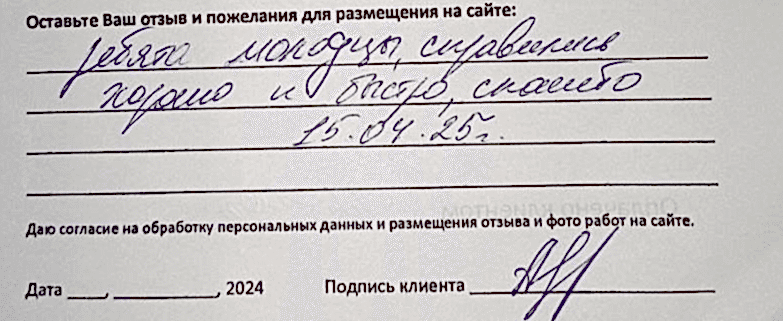 Оставьте Ваш отзыв и пожелания для размещения на сайте:
ребята молодцы, справились
хорошо и быстро, спасибо
15.04.25г.
Даю согласие на обработку персональных данных и размещения отзыва и фото работ на сайте.
Дата ____, __________, 2024 Подпись клиента